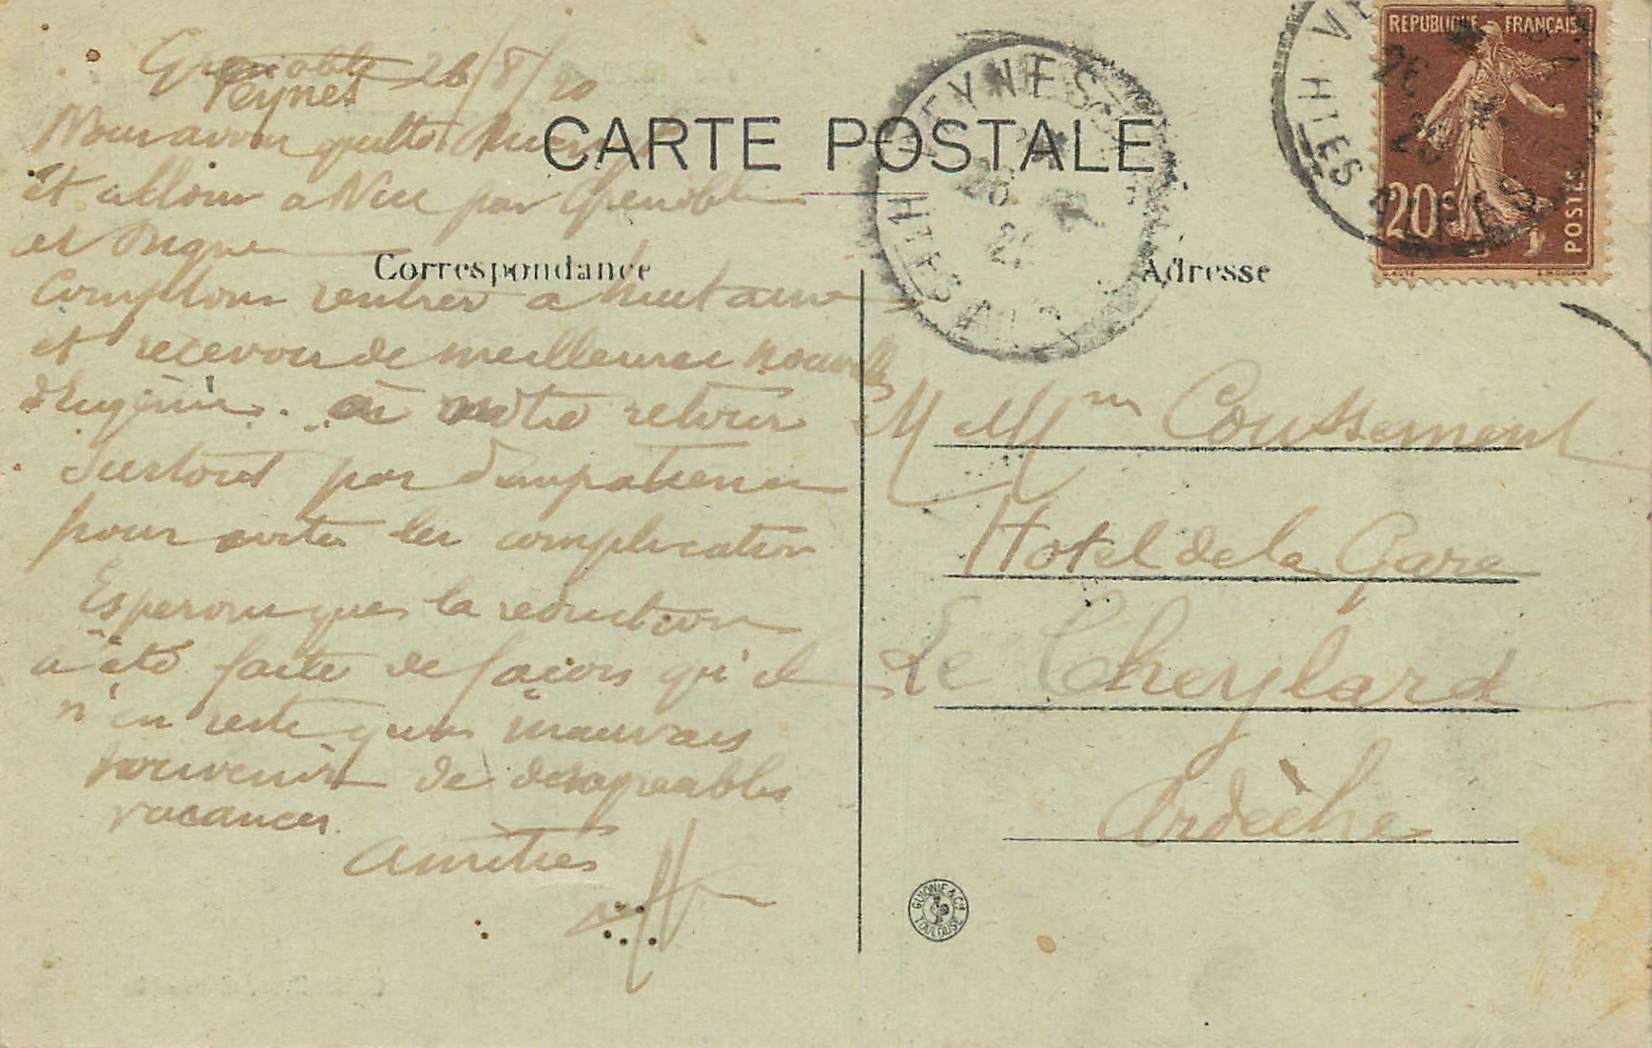 Grenoble 26/8/20
Veynes
Nous avons quitté
CARTE POSTALE
et allons a Nice par Grenoble
et Digne
Correspondance
Comptons rentrer a huitaine
et recevoir de meilleures nouvelles
d'Eugénie. à notre retour
Surtout pas d'impatience
pour eviter les complication
Esperons que la reduction
a été faite de facon qu'il
n'en reste qu'un mauvais
souvenir de desagreables
vacances.
Amitiés
VEYNES
HTES ALPES
26
REPUBLIQUE FRANÇAISE
20c
POSTES
VE
26
HTES ALPES
Adresse
M et Mme Coussemont
Hotel de la Gare
Le Cheylard
Ardèche
GUIONIE & Cie
TOULOUSE